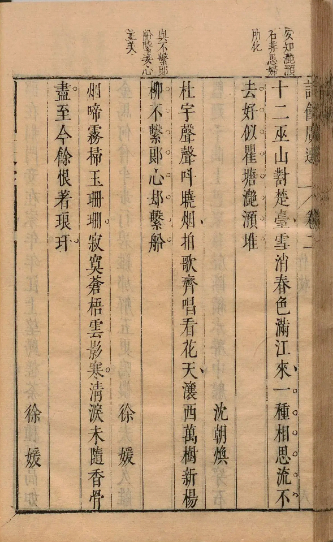 灔澦
思婦
所化
與不繫郎
船繫妾心
十二巫山對楚臺雪消春色滿江來一種相思流不
去好似瞿塘灔澦堆
沈朝煥
杜宇聲聲叫曉烟拍歌齊唱看花天瀼西萬樹新楊
柳不繫郎心却繫船
徐媛
烟啼霧掃玉珊珊寂寞蒼梧雲影寒清淚未隨香骨
盡至今餘恨著琅玕
徐媛